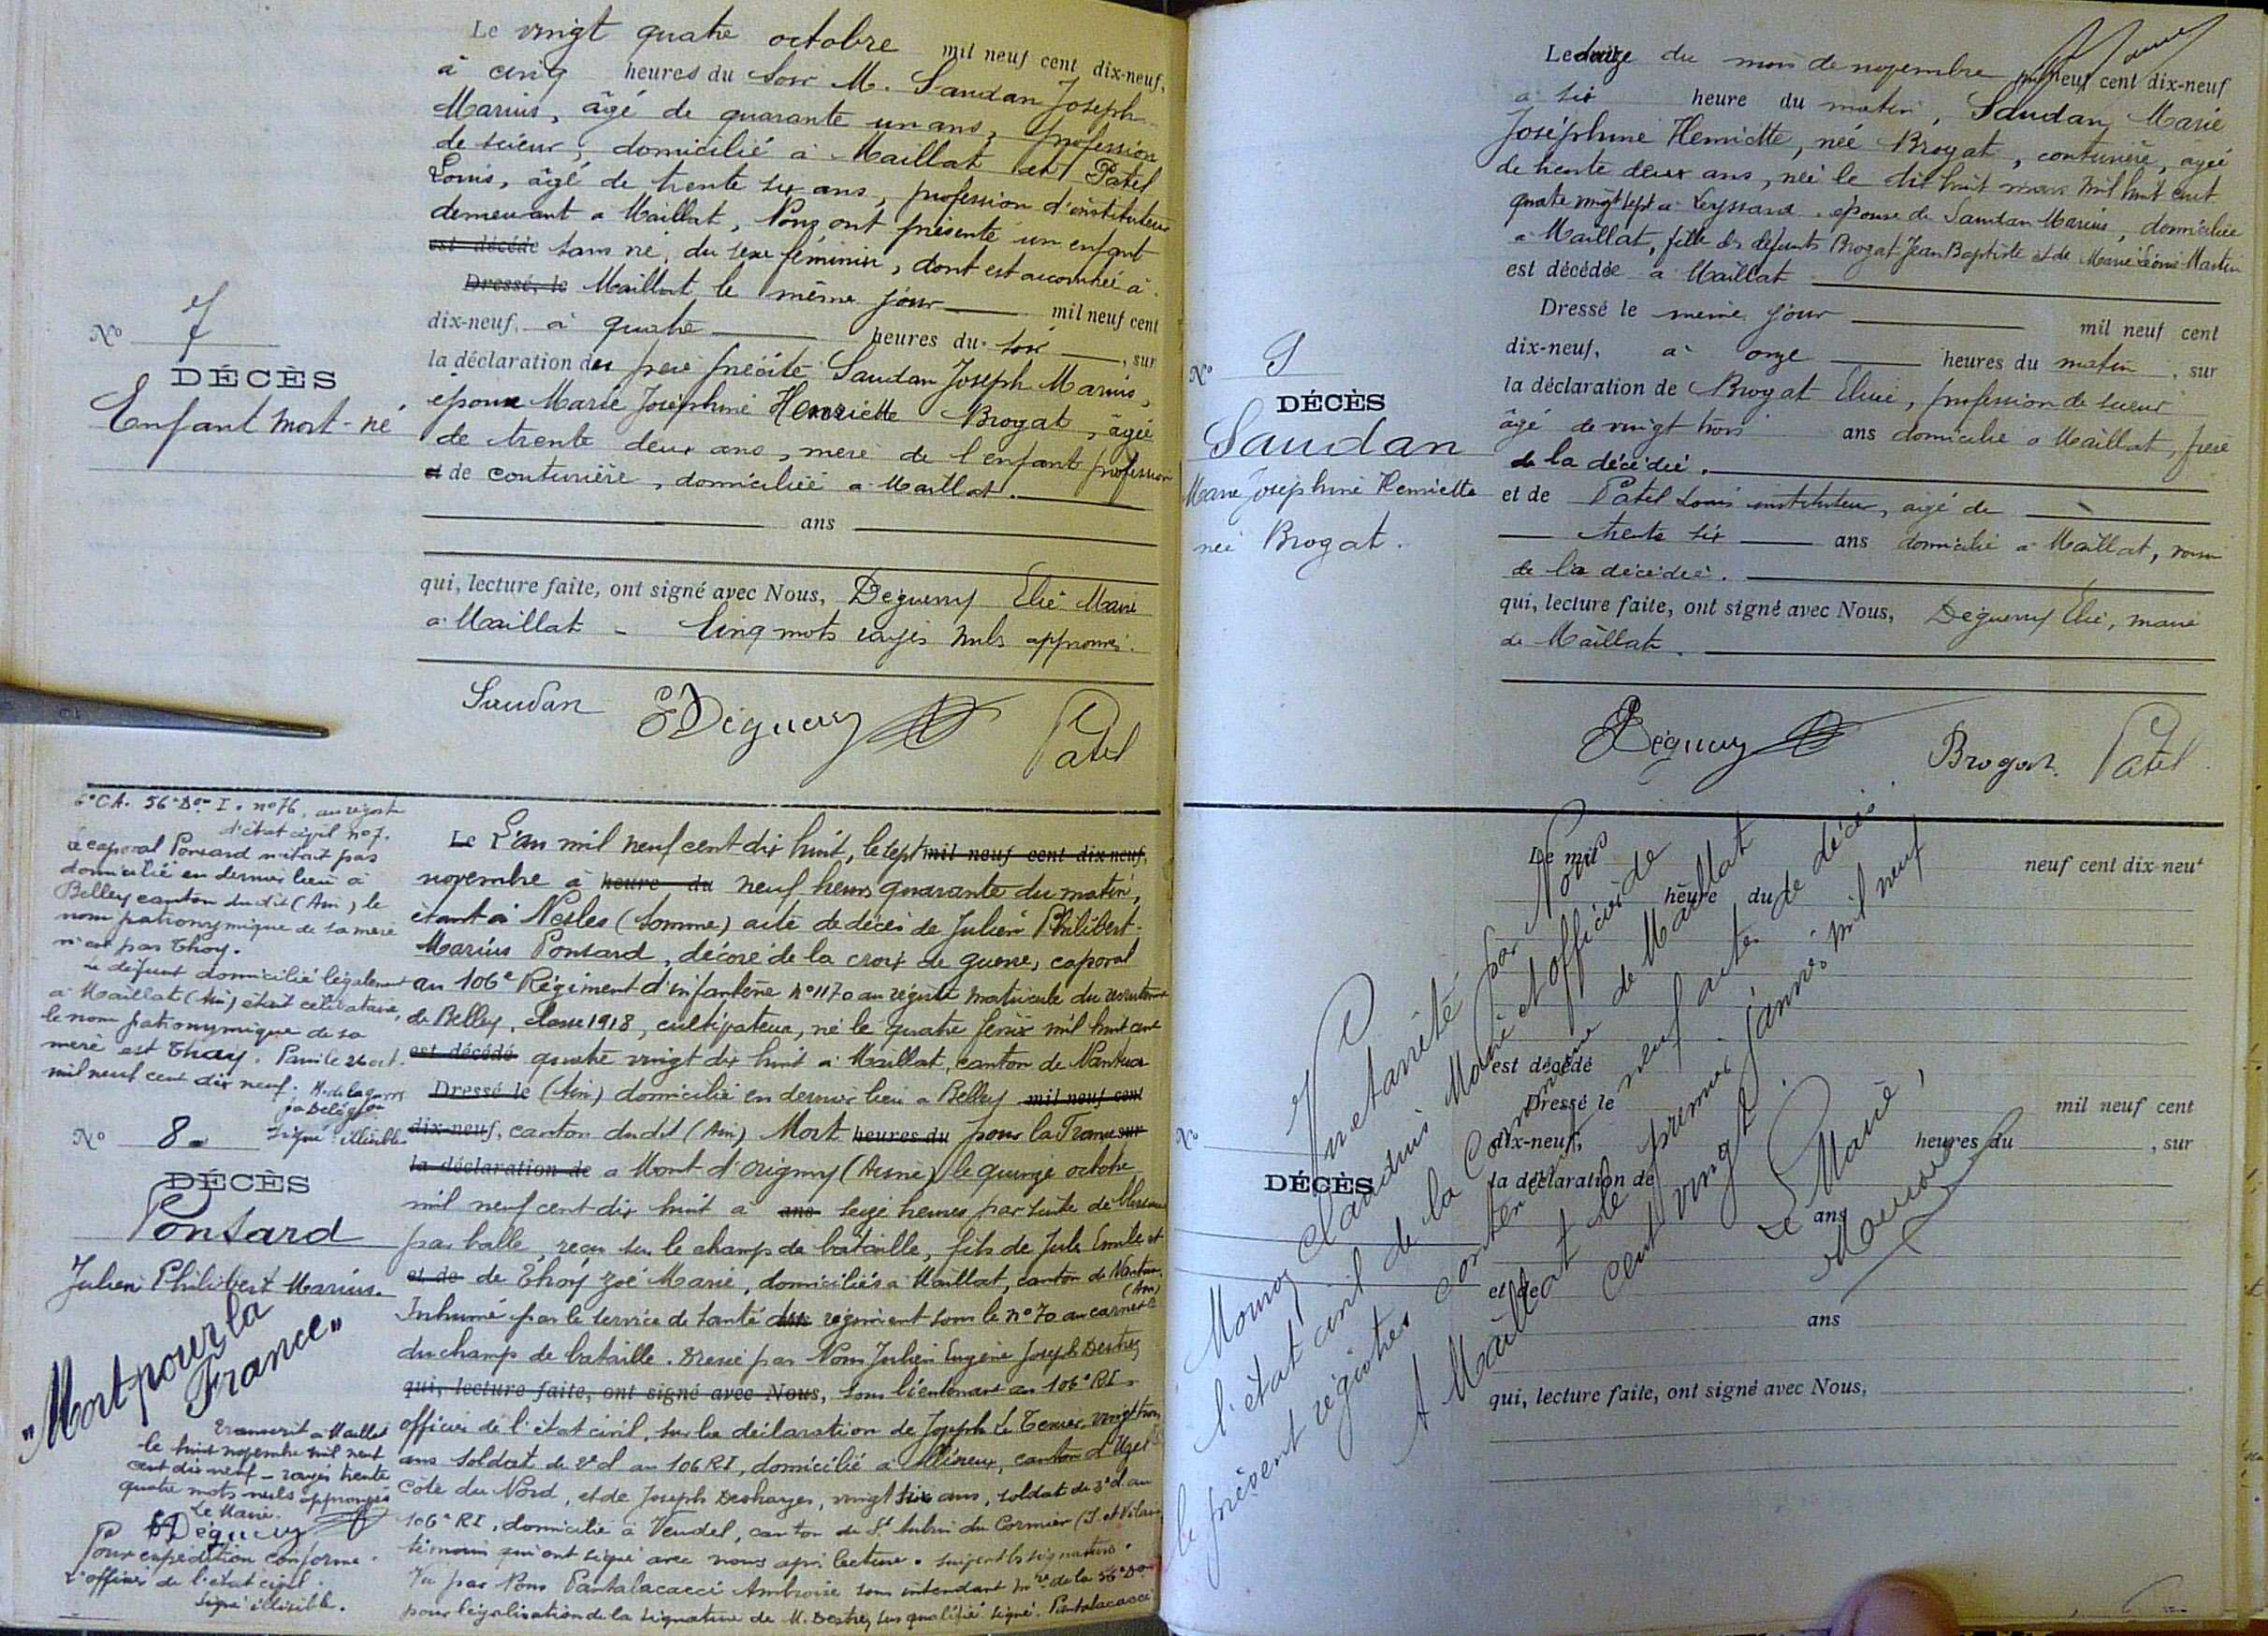 Le vingt quatre octobre mil neuf cent dix-neuf,
à cinq heures du soir M. Saudan Joseph
Marius, âgé de quarante un ans, profession
de scieur, domicilié à Maillat et Patel
Louis, âgé de trente six ans, profession d'instituteur
demeurant a Maillat, Nous ont présenté un enfant
est décédé sans vie, du sexe féminin, dont est accouchée à
Dressé, le Maillat le même jour mil neuf cent
dix-neuf, à quatre heures du soir, sur
la déclaration du père précité Saudan Joseph Marius,
époux Marie Joséphine Henriette Brogat, âgée
de trente deux ans, mère de l'enfant profession
et de couturière, domiciliée a Maillat.
ans
qui, lecture faite, ont signé avec Nous, Deguerry Elie Maire
a Maillat - Cinq mots rayés nuls approuvés.
Saudan EDéguerry Patel
No 7
DÉCÈS
Enfant mort-né
6e CA. 56e Don I. no 76, au registre
d'état civil no 7.
Le caporal Ponsard n'était pas
domicilié en dernier lieu à
Belley canton du dit (Ain), le
nom patronymique de sa mère
n'est pas Thoy.
Le défunt domicilié légalement
a Maillat (Ain) était célibataire,
le nom patronymique de sa
mère est Thay. Paris le 26 oct.
mil neuf cent dix neuf.
signé : illisible
No 8
DÉCÈS
Ponsard
Julien Philibert Marius.
"Mort pour la
France"
Transcrit a Maillat
le huit novembre mil neuf
cent dix neuf - rayés trente
quatre mots nuls approuvés
Le Maire.
EDéguerry
Pour expédition conforme.
L'officier de l'état civil.
signé illisible.
Le L'an mil neuf cent dix huit, le sept mil neuf cent dix neuf,
novembre à heure du neuf heures quarante du matin,
étant à Nesles (Somme) acte de décès de Julien Philibert
Marius Ponsard, décoré de la croix de guerre, caporal
au 106e Régiment d'infanterie no 1170 au registre matricule du recrutement
de Belley, classe 1918, cultivateur, né le quatre février mil huit cent
est décédé quatre vingt dix huit à Maillat, canton de Nantua
Dressé le (Ain) domicilié en dernier lieu a Belley mil neuf cent
dix-neuf, canton du dit (Ain) Mort heures du pour la France sur
la déclaration de a Mont d'Origny (Aisne) le quinze octobre
mil neuf cent dix huit à ans seize heures par suite de blessures
par balle, reçu sur le champ de bataille, fils de Jules Emile et
et de de Thoy Zoé Marie, domiciliés à Maillat, canton de Nantua
(Ain)
Inhumé par le service de santé du régiment sous le no 70 au carnet
du champ de bataille. Dressé par Nous Julien Eugène Joseph Destrez
qui, lecture faite, ont signé avec Nous, sous lieutenant au 106e RI
officier de l'état civil, sur la déclaration de Joseph Le Tenier, vingt trois
ans soldat de 2e cl au 106 RI, domicilié à Allineuc, canton d'Uzel
Côte du Nord, et de Joseph Deshayes, vingt six ans, soldat de 2e cl. au
106e RI, domicilié à Vendel, canton de St Aubin du Cormier (I. et Vilaine)
témoins qui ont signé avec nous après lecture. suivent les signatures.
Vu par Nous Pantalacacci Ambroise sous intendant mre de la 56e Don
pour légalisation de la signature de M. Destrez sus qualifié signé. Pantalacacci
Le douze du mois de novembre mil neuf cent dix-neuf
a six heure du matin, Saudan Marie
Joséphine Henriette, née Brogat, couturière, âgée
de trente deux ans, née le dix huit mars mil huit cent
quatre vingt sept a Leyssard, épouse de Saudan Marius, domiciliée
a Maillat, fille des défunts Brogat Jean Baptiste et de Marie Léonie Martin
est décédée a Maillat
Dressé le même jour mil neuf cent
dix-neuf, à onze heures du matin, sur
la déclaration de Brogat Elisée, profession de scieur
âgé de vingt trois ans domicilié a Maillat, frère
de la décédée.
et de Patel Louis instituteur, âgé de
trente six ans domicilié a Maillat, voisin
de la décédée.
qui, lecture faite, ont signé avec Nous, Deguerry Elie, maire
de Maillat.
EDéguerry Brogat Patel
No 9
DÉCÈS
Saudan
Marie Joséphine Henriette
née Brogat.
Le mil neuf cent dix-neuf
heure du
est décédé
Dressé le mil neuf cent
dix-neuf, heures du , sur
la déclaration de
ans
et de
ans
qui, lecture faite, ont signé avec Nous,
No
DÉCÈS
Vu et arrêté par Nous
Mornay Claudius Maire et officier de
l'état civil de la Commune de Maillat
le présent registre contenant neuf actes de décès.
A Maillat le premier janvier mil neuf
cent vingt.
Le Maire,